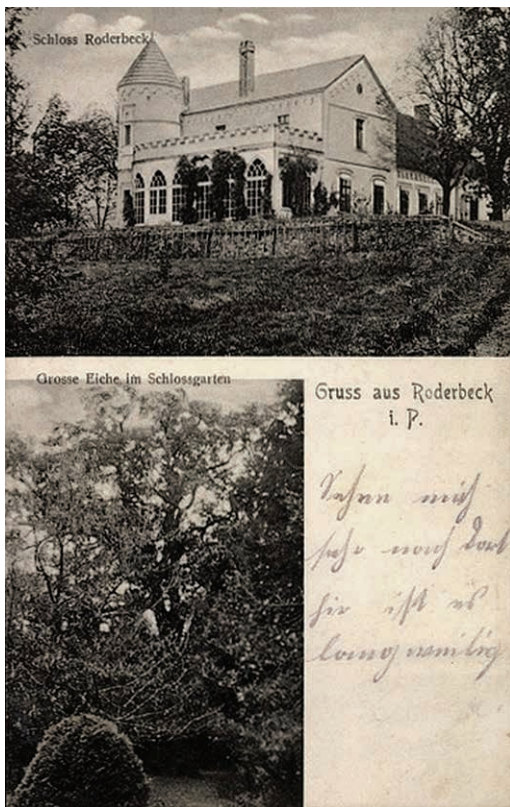 Schloss Roderbeck
Grosse Eiche im Schlossgarten
Gruss aus Roderbeck
i. P.
Sehne mich
sehr nach dort
hir ist es
langweilig